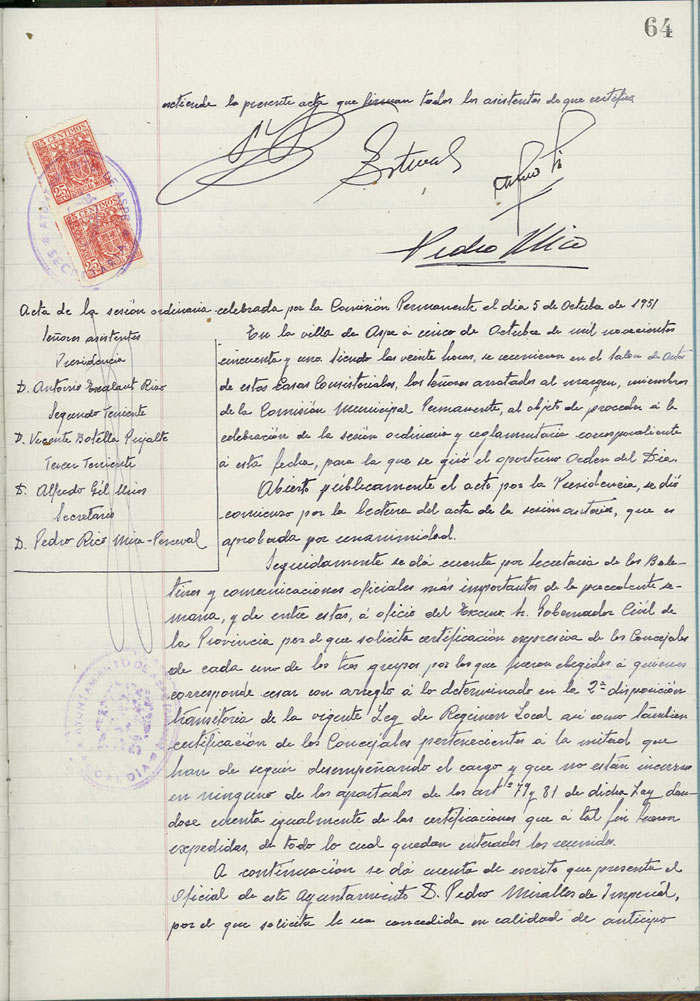 64
extiende la presente acta que firman todos los asistentes de que certifico
Pedro Rico
25 CENTIMOS
25 CENTIMOS
Acta de la sesión ordinaria celebrada por la Comisión Permanente el dia 5 de Octubre de 1951
Señores asistentes
Presidencia
D. Antonio Escalant Rico
Segundo Teniente
D. Vicente Botella Pujalte
Tercer Teniente
D. Alfredo Gil Mirós
Secretario
D. Pedro Rico Mira-Perceval
En la villa de Aspe á cinco de Octubre de mil novecientos
cincuenta y una siendo las veinte horas, se reunieron en el Salon de actos
de estas Casas Consistoriales, los señores anotados al margen, miembros
de la Comisión Municipal Permanente, al objeto de proceder á la
celebración de la sesión ordinaria y reglamentaria correspondiente
á esta fecha, para la que se giró el oportuno Orden del Dia.
Abierto públicamente el acto por la Presidencia, se dió
comienzo por la lectura del acta de la sesión anterior, que es
aprobada por unanimidad.
Seguidamente se dá cuenta por Secretaria de los Bole-
tines y comunicaciones oficiales más importantes de la precedente se-
mana, y de entre estas, á oficio del Excmo Sr. Gobernador Civil de
la Provincia por el que solicita certificación expresiva de los Concejales
de cada uno de los tres grupos por los que fueron elegidos á quienes
corresponde cesar con arreglo á lo determinado en la 2ª disposición
transitoria de la vigente Ley de Regimen Local asi como tambien
certificación de los Concejales pertenecientes á la mitad que
han de seguir desempeñando el cargo y que no están incursos
en ninguno de los apartados de los artº 79 y 81 de dicha Ley, dan-
dose cuenta igualmente de las certificaciones que á tal fin fueron
expedidas, de todo lo cual quedan enterados los reunidos.
A continuación se dá cuenta de escrito que presenta el
Oficial de este Ayuntamiento D. Pedro Miralles de Imperial,
por el que solicita le sea concedida en calidad de anticipo